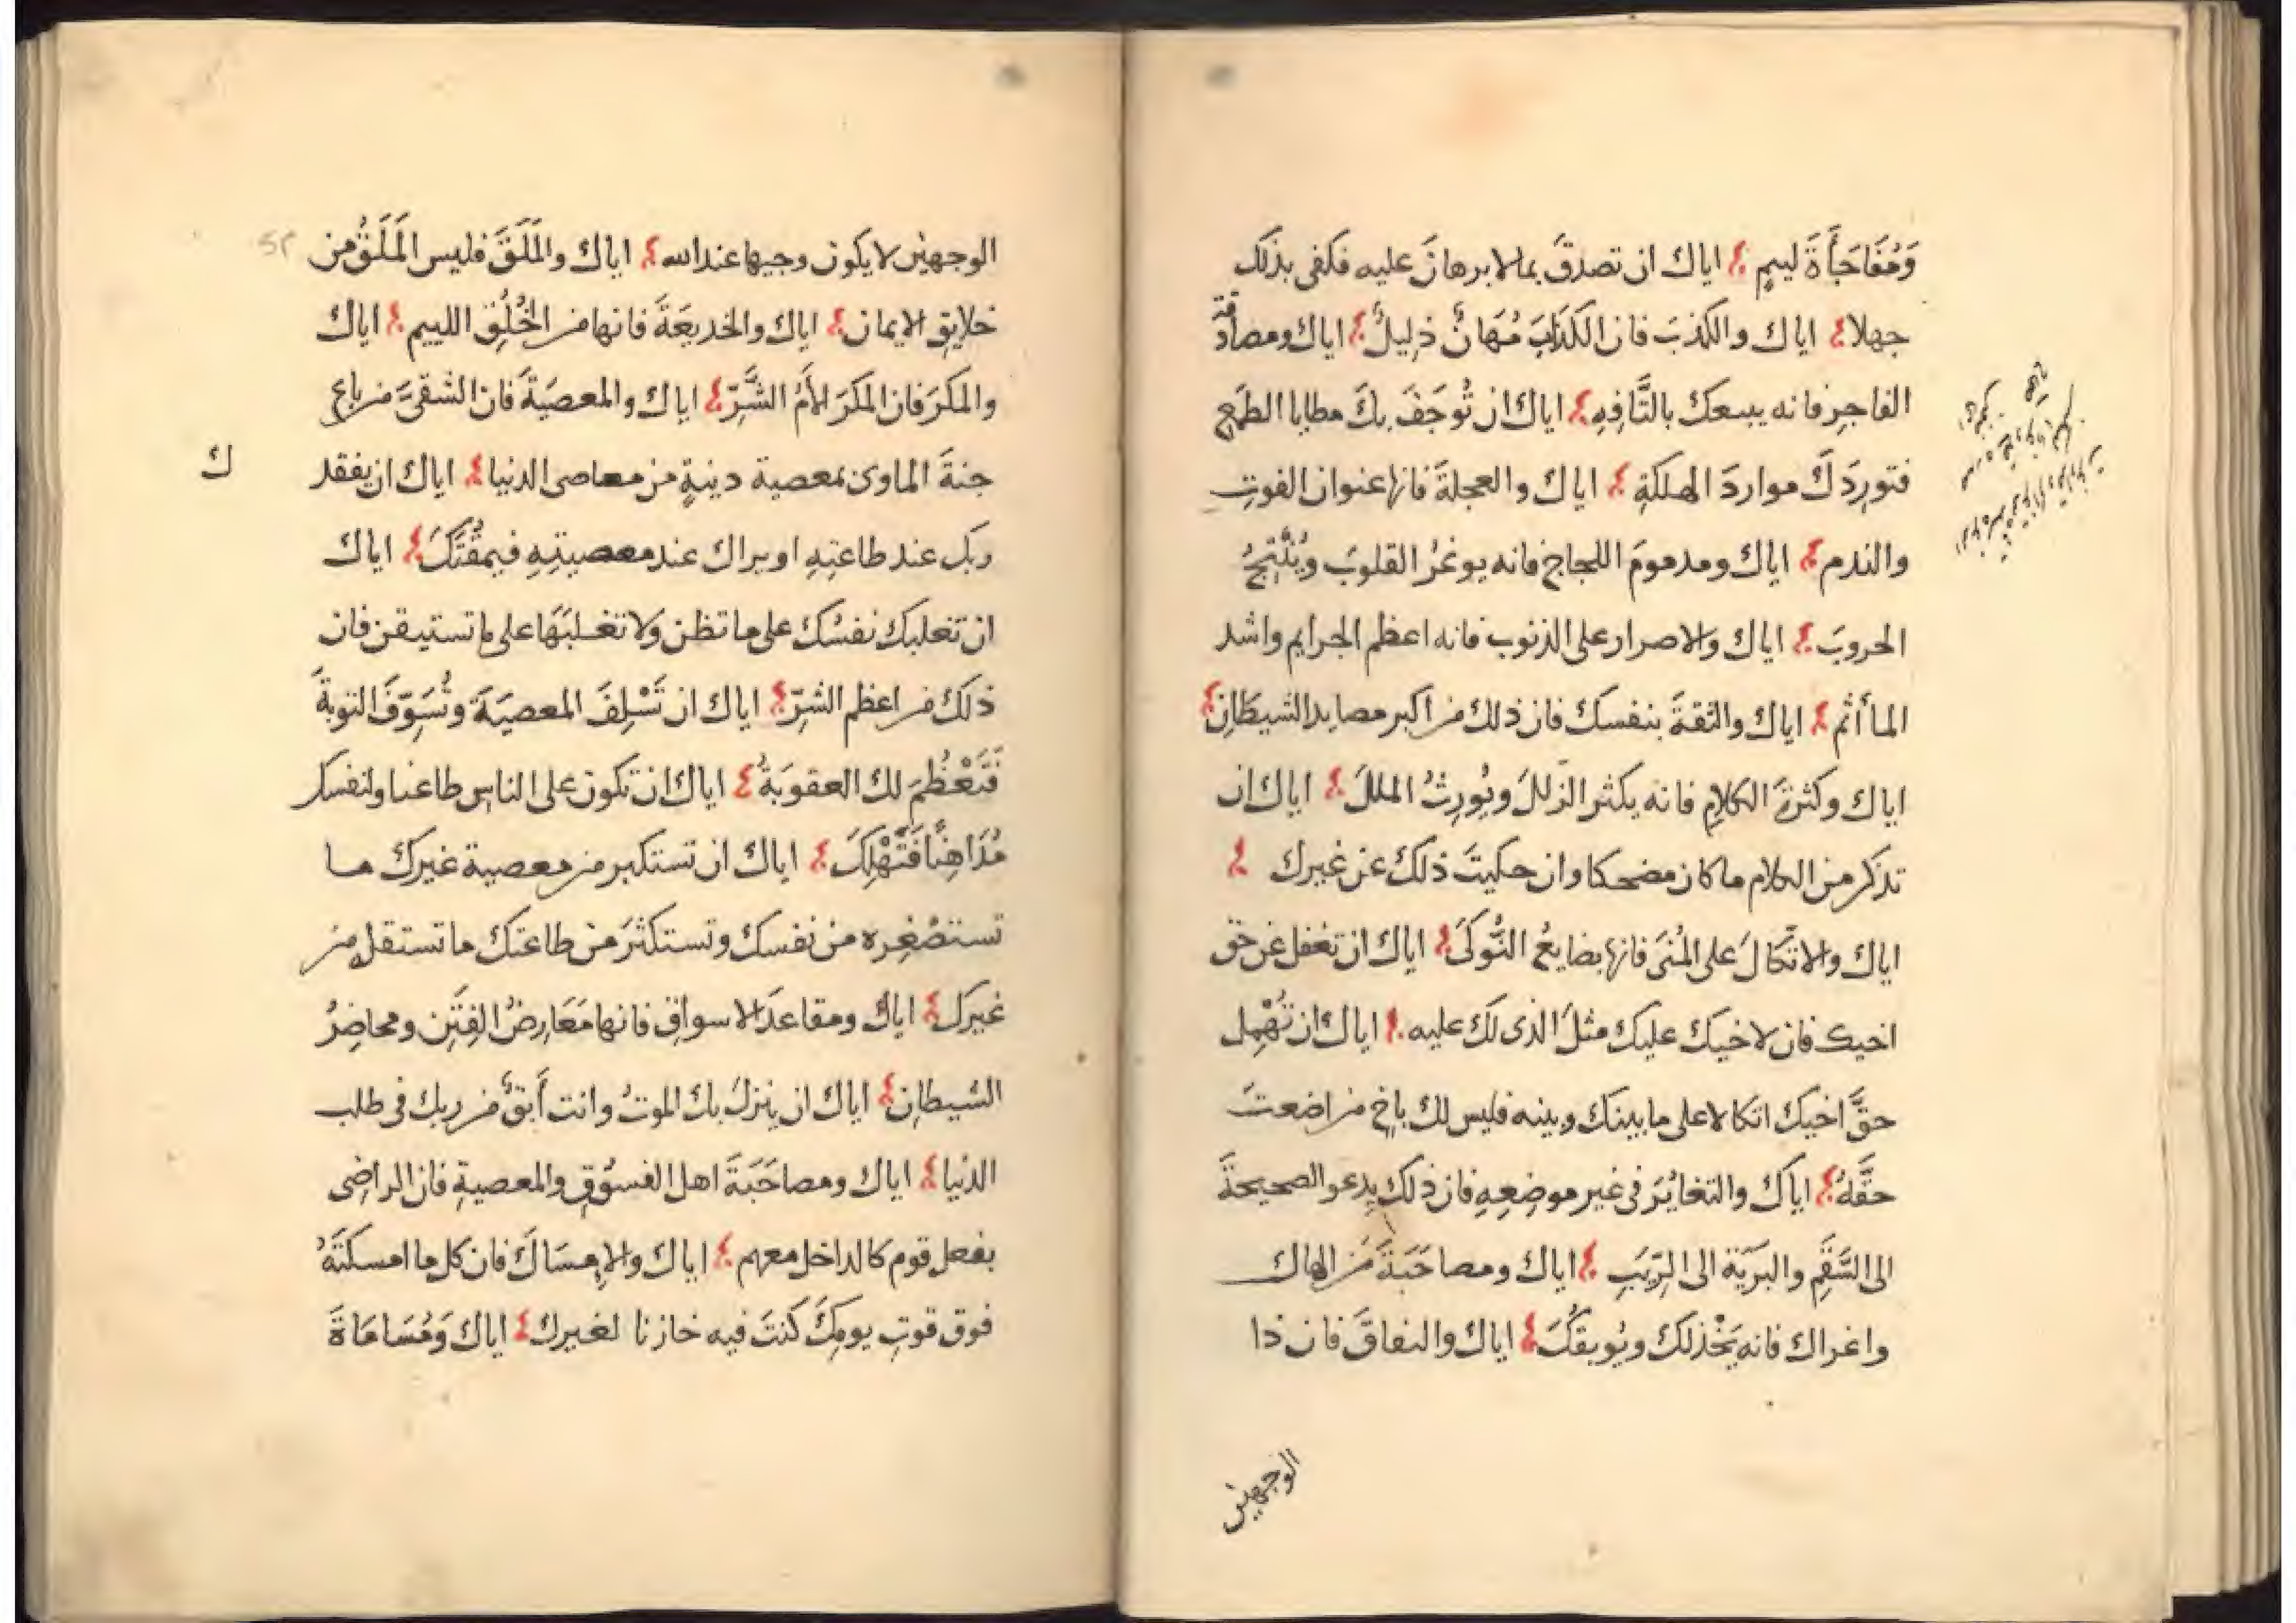 وَمُفَاجَأَةَ لييمٍ اياك ان تصدقَ بما لا برهانَ عليه فكفى بذلك
جهلا اياك والكذبَ فان الكذابَ مُهَانٌ ذليلٌ اياك ومصادقة
الفاجرِ فانه يبيعك بالتَّافِهِ اياك ان تُوجَفَ بِكَ مطايا الطمعِ
فتورِدَكَ مواردَ الهلكةِ اياك والعجلةَ فانها عنوان الفوتِ
والندم اياك ومذمومَ اللجاجِ فانه يوغرُ القلوبَ ويُنْتِجُ
الحروبَ اياك والاصرار على الذنوب فانه اعظم الجرايم واشد
المأأثم اياك والثقةَ بنفسك فان ذلك من اكبر مصايد الشيطانِ
اياك وكثرةَ الكلامِ فانه يكثر الزّللَ ويُورِثُ المللَ اياك ان
تذكر من الكلام ما كان مضحكا وان حكيتَ ذلك عن غيرك
اياك والاتّكالَ على المُنَى فانها بضايعُ النُّوكَى اياك ان تغفل عن حق
اخيك فان لاخيك عليك مثلَ الذى لك عليه اياك ان تُهْمِل
حقَّ اخيك اتكالا على ما بينك وبينه فليس لك باخٍ من اضعتَ
حقَّهُ اياك والتغايُرَ فى غير موضِعِهِ فان ذلك يدعو الصحيحةَ
الى السَّقَمِ والبريّة الى الرِّيَبِ اياك ومصاحَبَةَ مَن الهاك
واغراك فانه يَخْذلك ويُوبقُكَ اياك والنفاقَ فان ذا
الوجهين
الوجهين لا يكون وجيها عند الله اياك والمَلَقَ فليس المَلَقُ من
خلايقِ الايمان اياك والخديعَةَ فانها من الخُلُقِ اللييم اياك
والمكرَ فان المكرَ لأَمُ الشَّرِّ اياك والمعصيَةَ فان الشقىَّ من باع
جنةَ الماوى بمعصية دينيةٍ من معاصى الدنيا اياك ان يفقد
ك
ربك عند طاعتِهِ او يراك عند معصيتِهِ فيمقُتَكَ اياك
ان تغلبك نفسُك على ما تظن ولا تغلبَهَا على ما تستيقن فان
ذلك من اعظم الشرّ اياك ان تَسْلِفَ المعصيَةَ وتُسَوِّفَ التوبةَ
فَتَعْظُمَ لك العقوبَةُ اياك ان تكون على الناس طاعنا ولنفسك
مُدَاهِنًا فَتَهْلِكَ اياك ان تستكبر من معصية غيرك ما
تستصْغِره من نفسك وتستكثرَ من طاعتك ما تستقل من
غيرك اياك ومقاعدَ الاسواقِ فانها مَعَارِضُ الفِتَنِ ومحاضِرُ
الشيطانِ اياك ان ينزلَ بك الموتُ وانت أَبقٌ من ربك فى طلب
الدُنيا اياك ومصاحَبَةَ اهل الفسُوقِ والمعصيةِ فان الراضِى
بفعل قوم كالداخل معهم اياك والاِمسَاكَ فان كل ما امسكتَهُ
فوق قوتِ يومِكَ كنتَ فيه خازنا لغيرك اياك وَمُسَامَاةَ